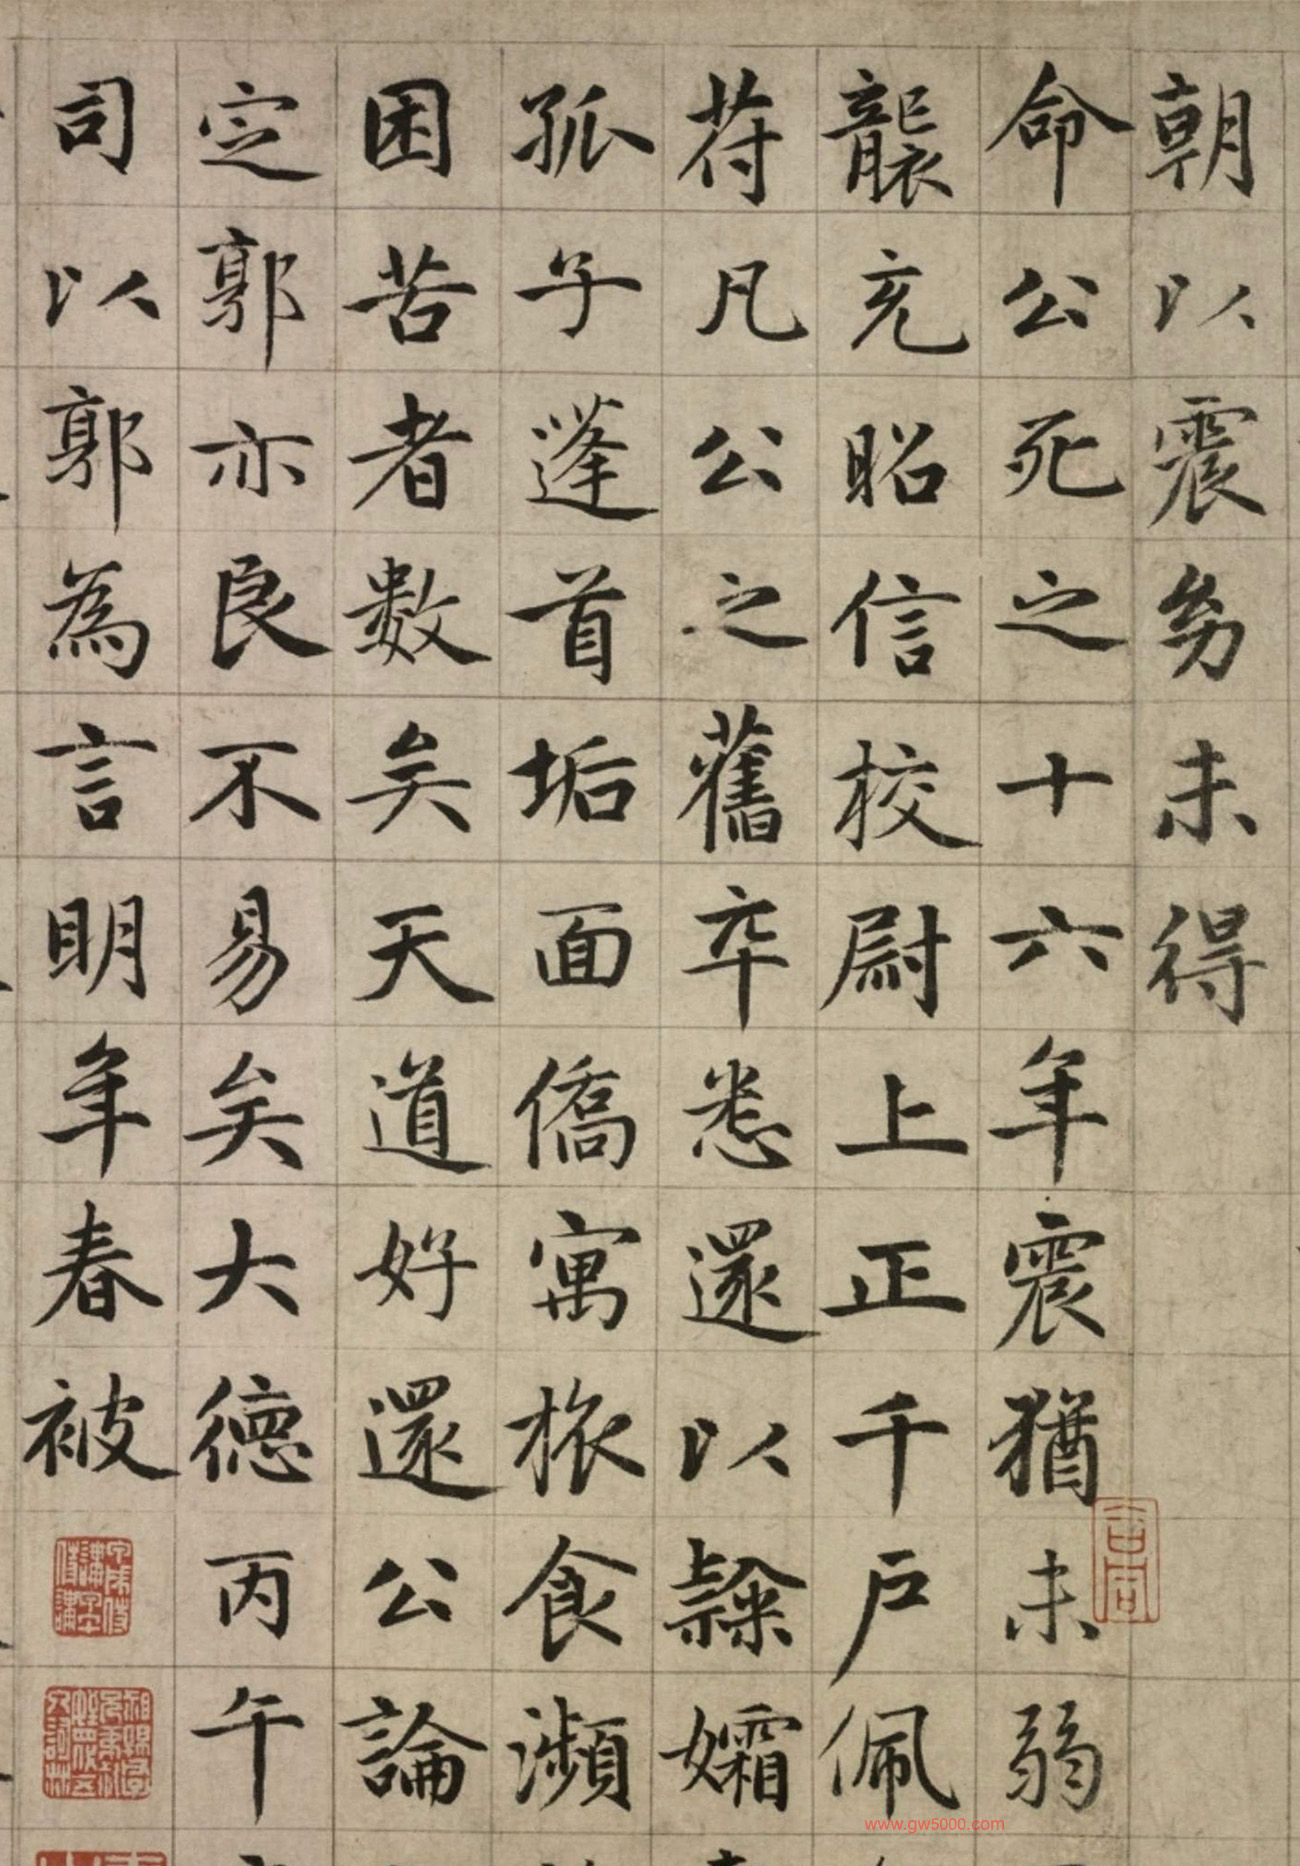 朝以震勞未得
命公死之十六年震猶未弱
襲充昭信校尉上正千戶佩
符凡公之舊卒悉還以隸孀
孤子蓬首垢面僑寓旅食瀕
困苦者數矣天道好還公論
定郭亦良不易矣大德丙午
司以郭為言明年春被
www.gw5000.com